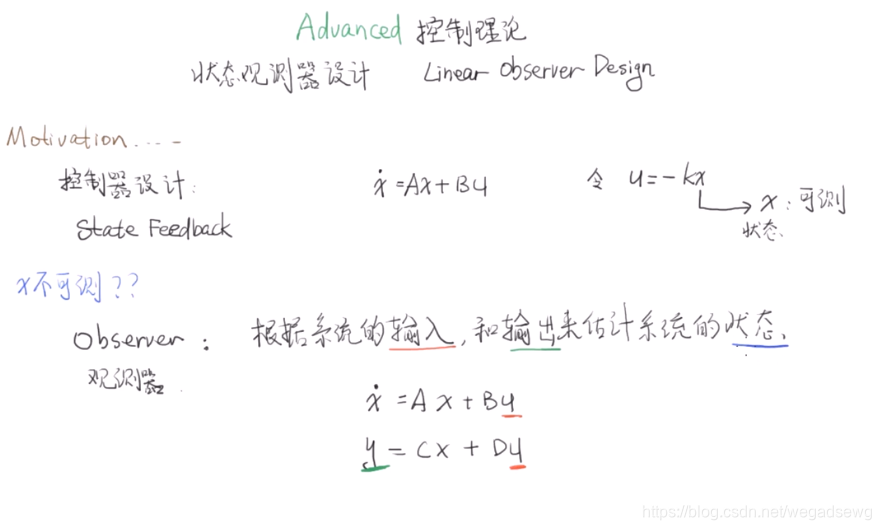 Advanced 控制理论
状态观测器设计 Linear Observer Design
Motivation.....
控制器设计: ẋ=Ax+Bu 令 u=-kx
State Feedback x:可测
状态
x不可测??
Observer: 根据系统的输入,和输出来估计系统的状态.
观测器
ẋ=Ax+Bu
y=Cx+Du
https://blog.csdn.net/wegadsewg